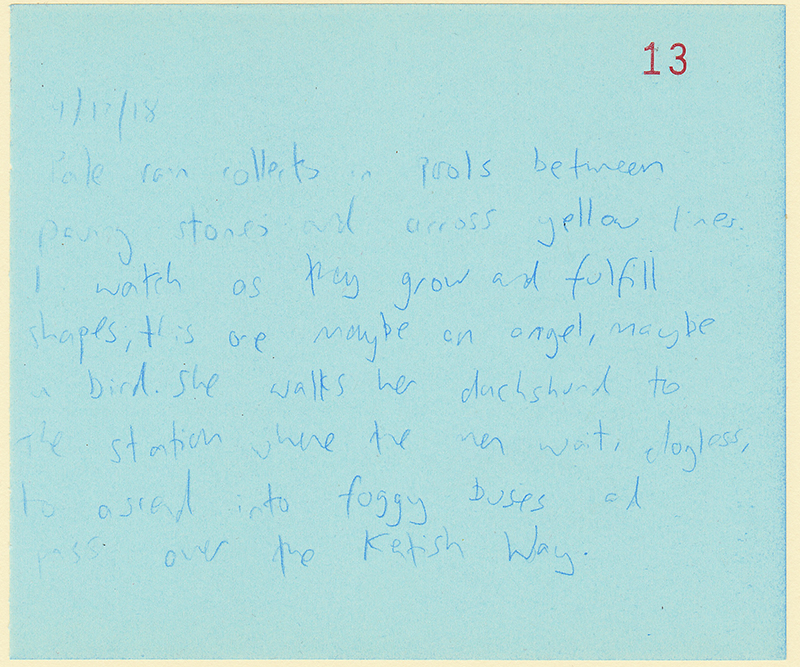 13
9/11/18
Pale rain collects in pools between
paving stones and across yellow lines.
I watch as they grow and fulfill
shapes, this one maybe an angel, maybe
a bird. She walks her dachshund to
the station where the men wait, dogless,
to ascend into foggy buses and
pass over the Kentish Way.